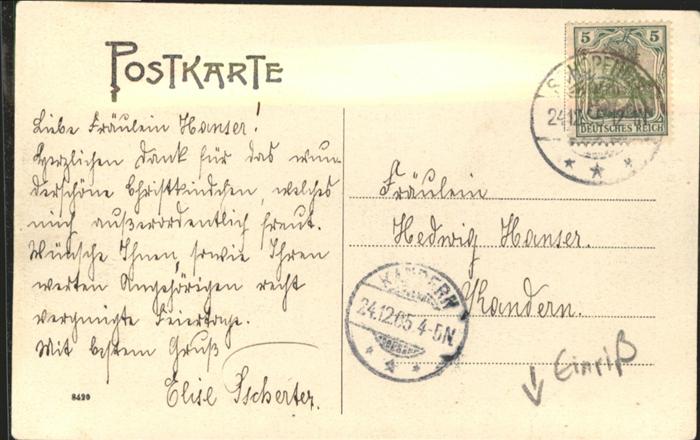 POSTKARTE
5 5
DEUTSCHES REICH
SCHOPFHEIM
24.12.05
Liebe Fräulein Hanser!
Herzlichen Dank für das wun-
derschöne Christkindchen, welches
mich außerordentlich freut.
Wünsche Ihnen, sowie Ihren
werten Angehörigen recht
vergnügte Feiertage.
Mit bestem Gruß
Elise
Fräulein
Hedwig Hanser.
Kandern.
KANDERN
24.12.05 4-5N
Einriß
8420